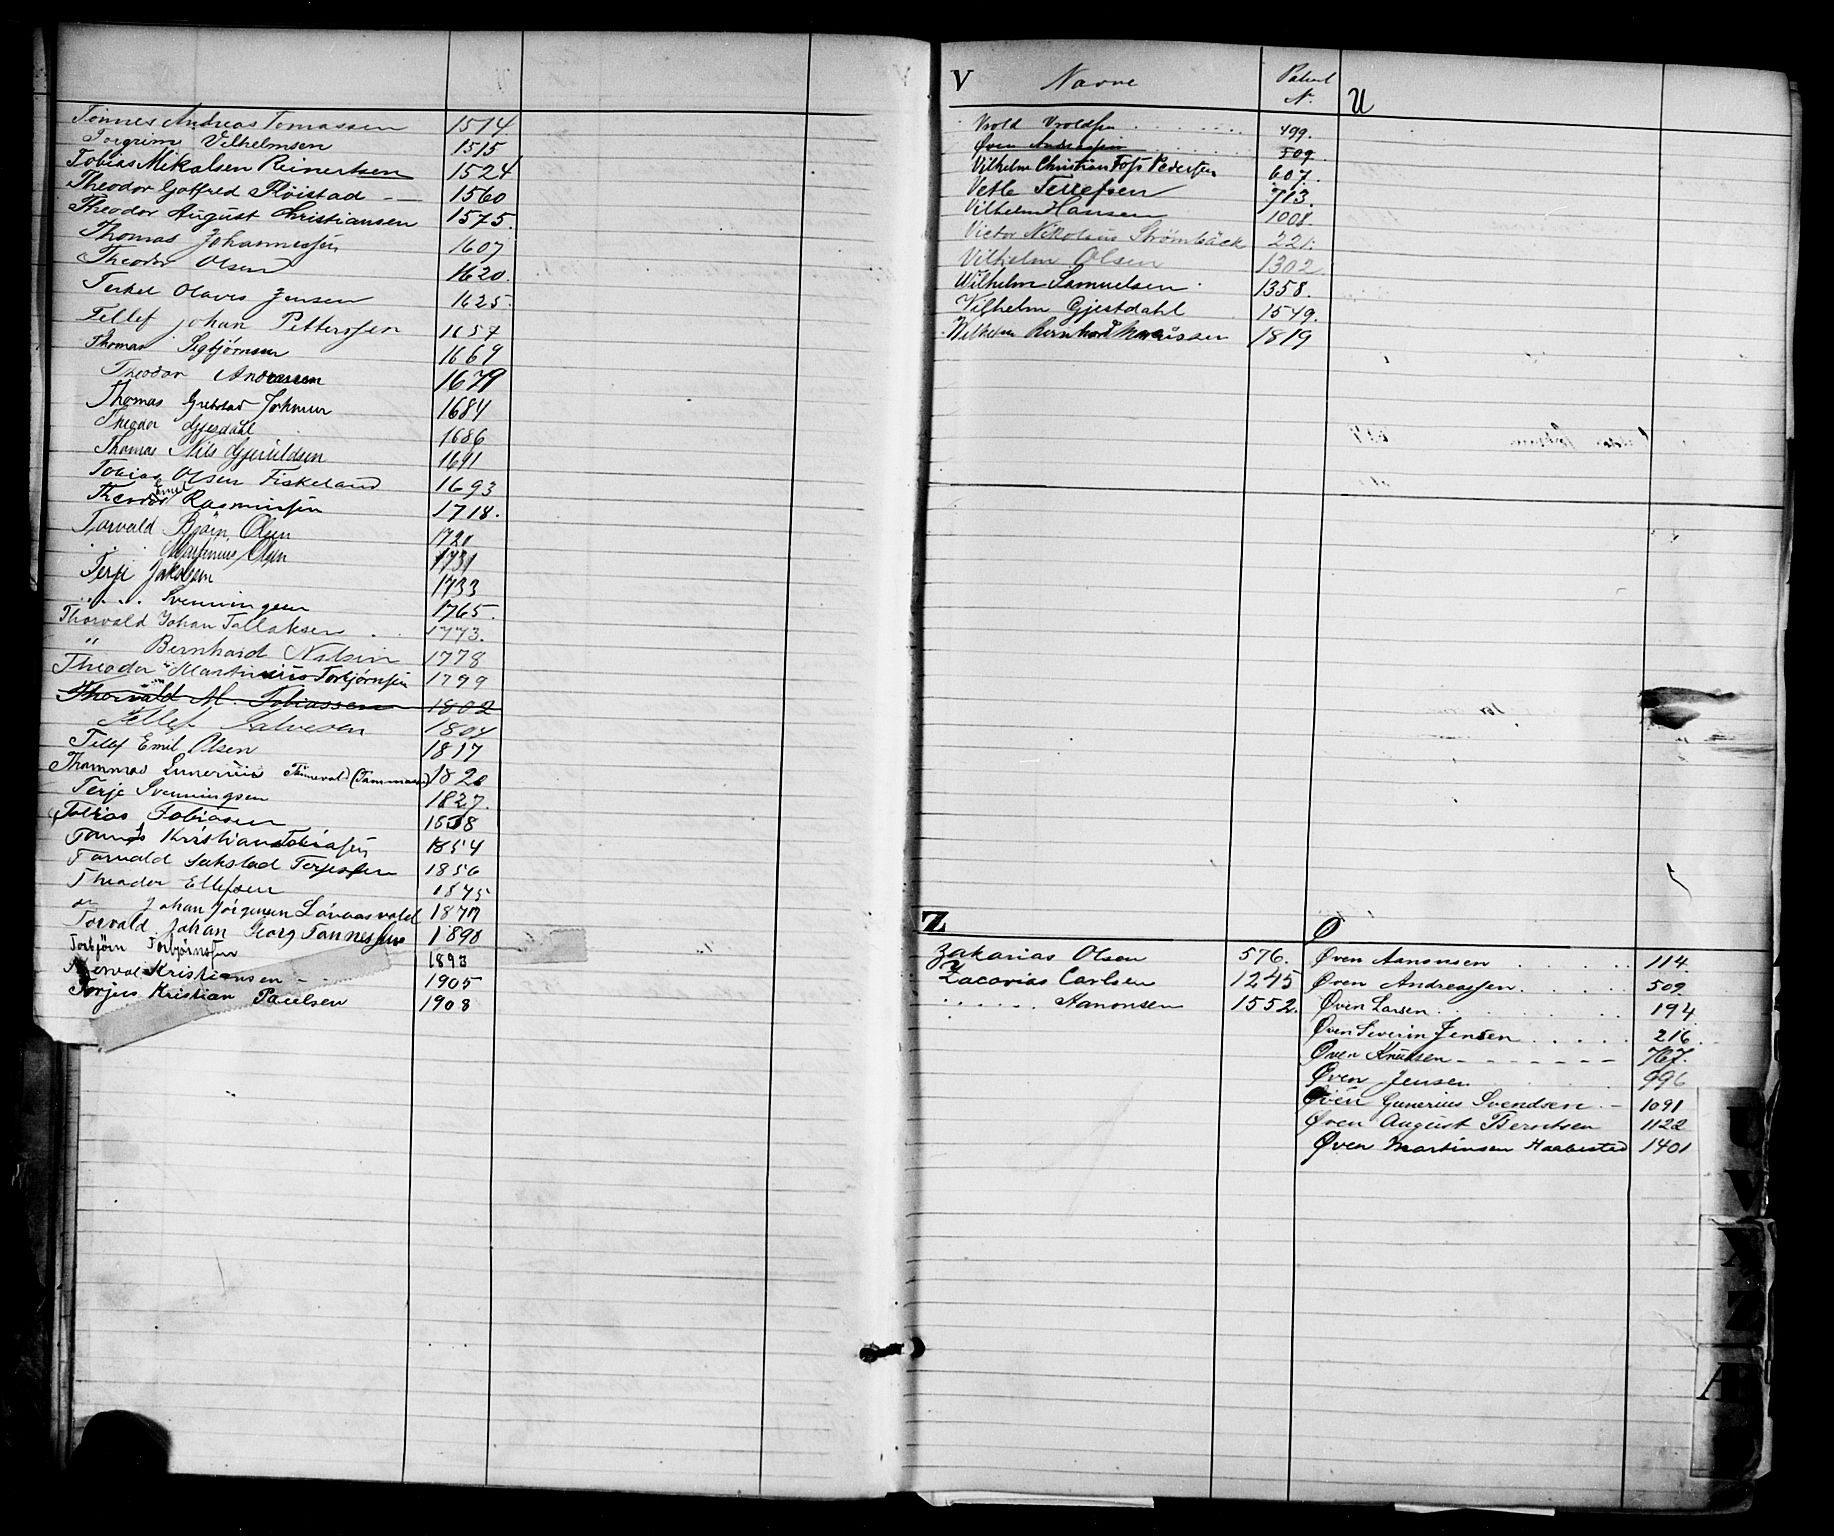 Tønnes Andreas Tomassen 1514
Torgrim Vilhelmsen 1515
Tobias Mikalsen Reinertsen 1524
Theodor Gotfred Fløistad 1560
Theodor August Christiansen 1575.
Thomas Johannessen 1607
Theodor Olsen 1620.
Terkel Olaves Jensen 1625.
Tellef Johan Pettersen 1657
Thomas Sigbjørnsen 1669
Theodor Andreassen 1679
Thomas 1684
Theodor Gjesdahl 1686
Thomas Nils 1691
Tobias Olsen Fiskeland 1693
Theodor Emil Rasmussen 1718.
Torvald Bjørn Olsen 1721
Olsen 1731
Terje Jakobsen 1733
..... Svenningsen 1765.
Thorvald Johan Tallaksen 1773.
" Bernhard Nilsen 1778
Theodor Martinius Torbjørnsen 1799
Thorvald M. Tobiassen 1802
Tellef Salvesen 1804
Tellef Emil Olsen 1817
1820
Terje Svenningsen 1827.
Tobias Tobiasen 1838
Kristian Tobiasen 1854
Torvald Terjesen 1856
Theodor Ellefsen 1875
do Johan Jørgensen 1877
Torvald Johan Georg Tønnesen 1890
Torbjørn Torbjørnsen 1893
Kristiansen 1905
Torjus Kristian Paulsen 1908
V Navne Patent N. U
Vrold Vroldsen 499.
Øven Andreassen 509.
Vilhelm Christian Foss Pedersen 607.
Vetle Tellefsen 713.
Vilhelm Hansen 1008.
Victor Nikolaus Strømbäck 221.
Vilhelm Olsen 1302
Wilhelm Samuelsen 1358.
Vilhelm Gjestdahl 1549.
Wilhelm Bernhard 1819
Z Ø
Zakarias Olsen 576.
Zacarias Carlsen 1245
..... Aanonsen 1552.
Øven Aanonsen 114.
Øven Andreassen 509.
Øven Larsen 194
Øven Severin Jensen 216
Øven Knudsen 767.
Øven Jensen 996
Øven Gunerius Svendsen 1091
Øven August Berntsen 1122
Øven Martinsen Haabestad 1401
U
V
X
Z
Æ